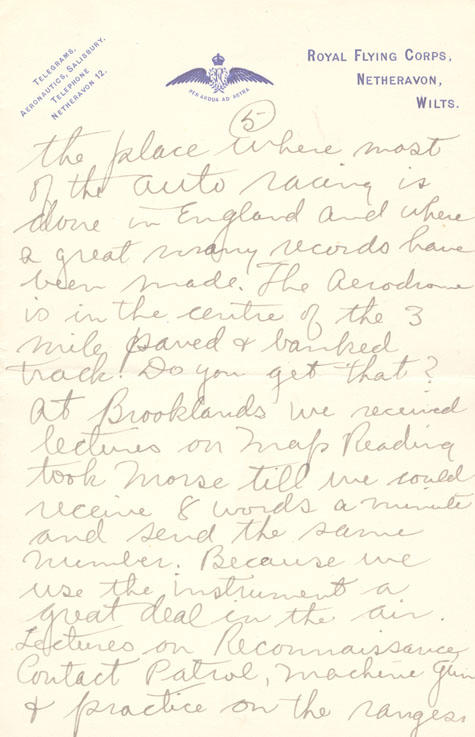 TELEGRAMS,
AERONAUTICS, SALISBURY.
TELEPHONE
NETHERAVON 12.
PER ARDUA AD ASTRA
ROYAL FLYING CORPS,
NETHERAVON,
WILTS.
5
the place where most
of the auto racing is
done in England and where
a great many records have
been made. The Aerodrome
is in the centre of the 3
mile paved & banked
track. Do you get that?
At Brooklands we received
lectures on Map Reading
took Morse till we could
receive 8 words a minute
and send the same
number. Because we
use the instrument a
great deal in the air.
Lectures on Reconnaissance,
Contact Patrol, Machine Gun
& practice on the ranges,